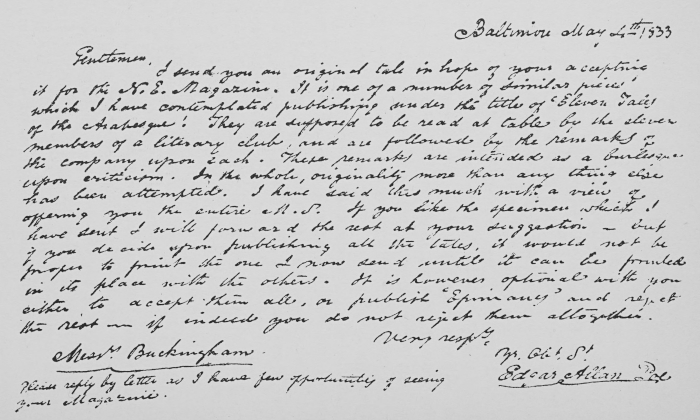 Baltimore May 4th, 1833
Gentlemen,
I send you an original tale in hope of your accepting
it for the N. E. Magazine. It is one of a number of similar pieces
which I have contemplated publishing under the title of 'Eleven Tales
of the Arabesque'. They are supposed to be read at table by the eleven
members of a literary club, and are followed by the remarks of
the company upon each. These remarks are intended as a burlesque
upon criticism. In the whole, originality more than any thing else
has been attempted. I have said this much with a view of
offering you the entire M.S. If you like the specimen which I
have sent I will forward the rest at your suggestion — but
if you decide upon publishing all the tales, it would not be
proper to print the one I now send until it can be printed
in its place with the others. It is however optional with you
either to accept them all, or publish 'Epimanes' and reject
the rest — if indeed you do not reject them altogether.
Very resp'y,
Yr. Obt. St.
Messrs Buckingham.
Edgar Allan Poe
Please reply by letter as I have few opportunities of seeing
your Magazine.